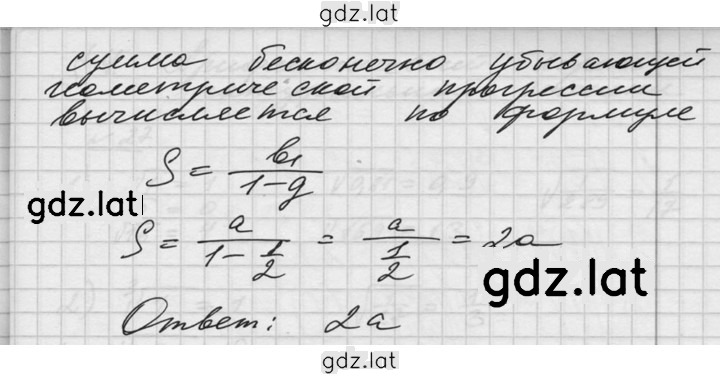 gdz.lat
сумма бесконечно убывающей
геометрической прогрессии
вычисляется по формуле
S = b₁/(1-q)
gdz.lat
S = a/(1-1/2) = a/(1/2) = 2a
gdz.lat
Ответ: 2a
gdz.lat